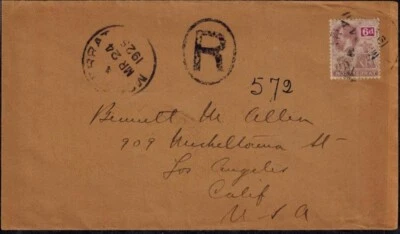 MONTSERRAT
MR 24
1925
R
6D
MONTSERRAT
572
Bennett M Allen
909 Micheltorena St
Los Angeles
Calif
U S A